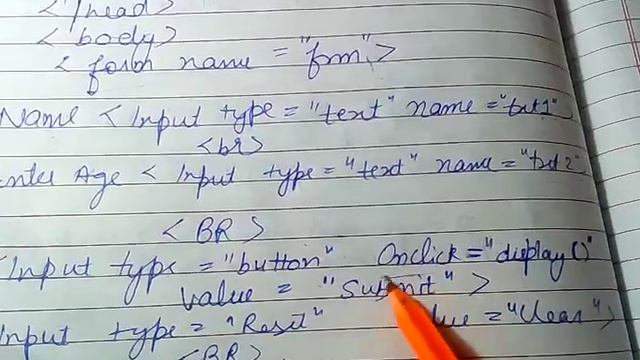 </head>
<body>
<form name="frm">
Name <Input type="text" name="txt1"
<br>
Enter Age < Input type="text" name="txt2"
<BR>
Input type="button" Onclick="display()"
value = "Submit" >
Input type="Reset" value="Clear">
<BR>